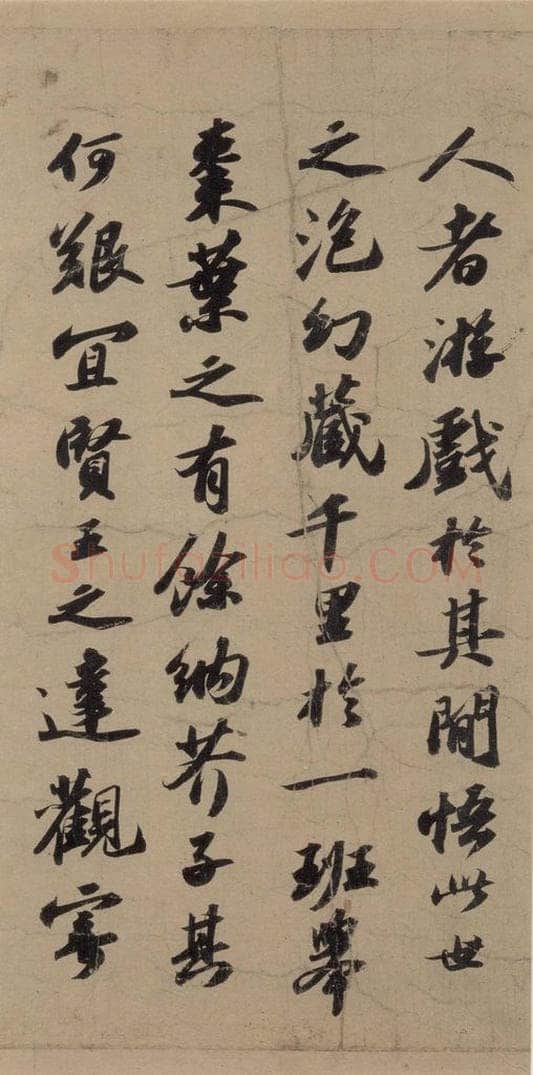 人者游戲於其間悟此世
之泡幻藏千里於一班舉
棗葉之有餘納芥子其
何艱宜賢王之達觀寄
Shufaziliao.COM